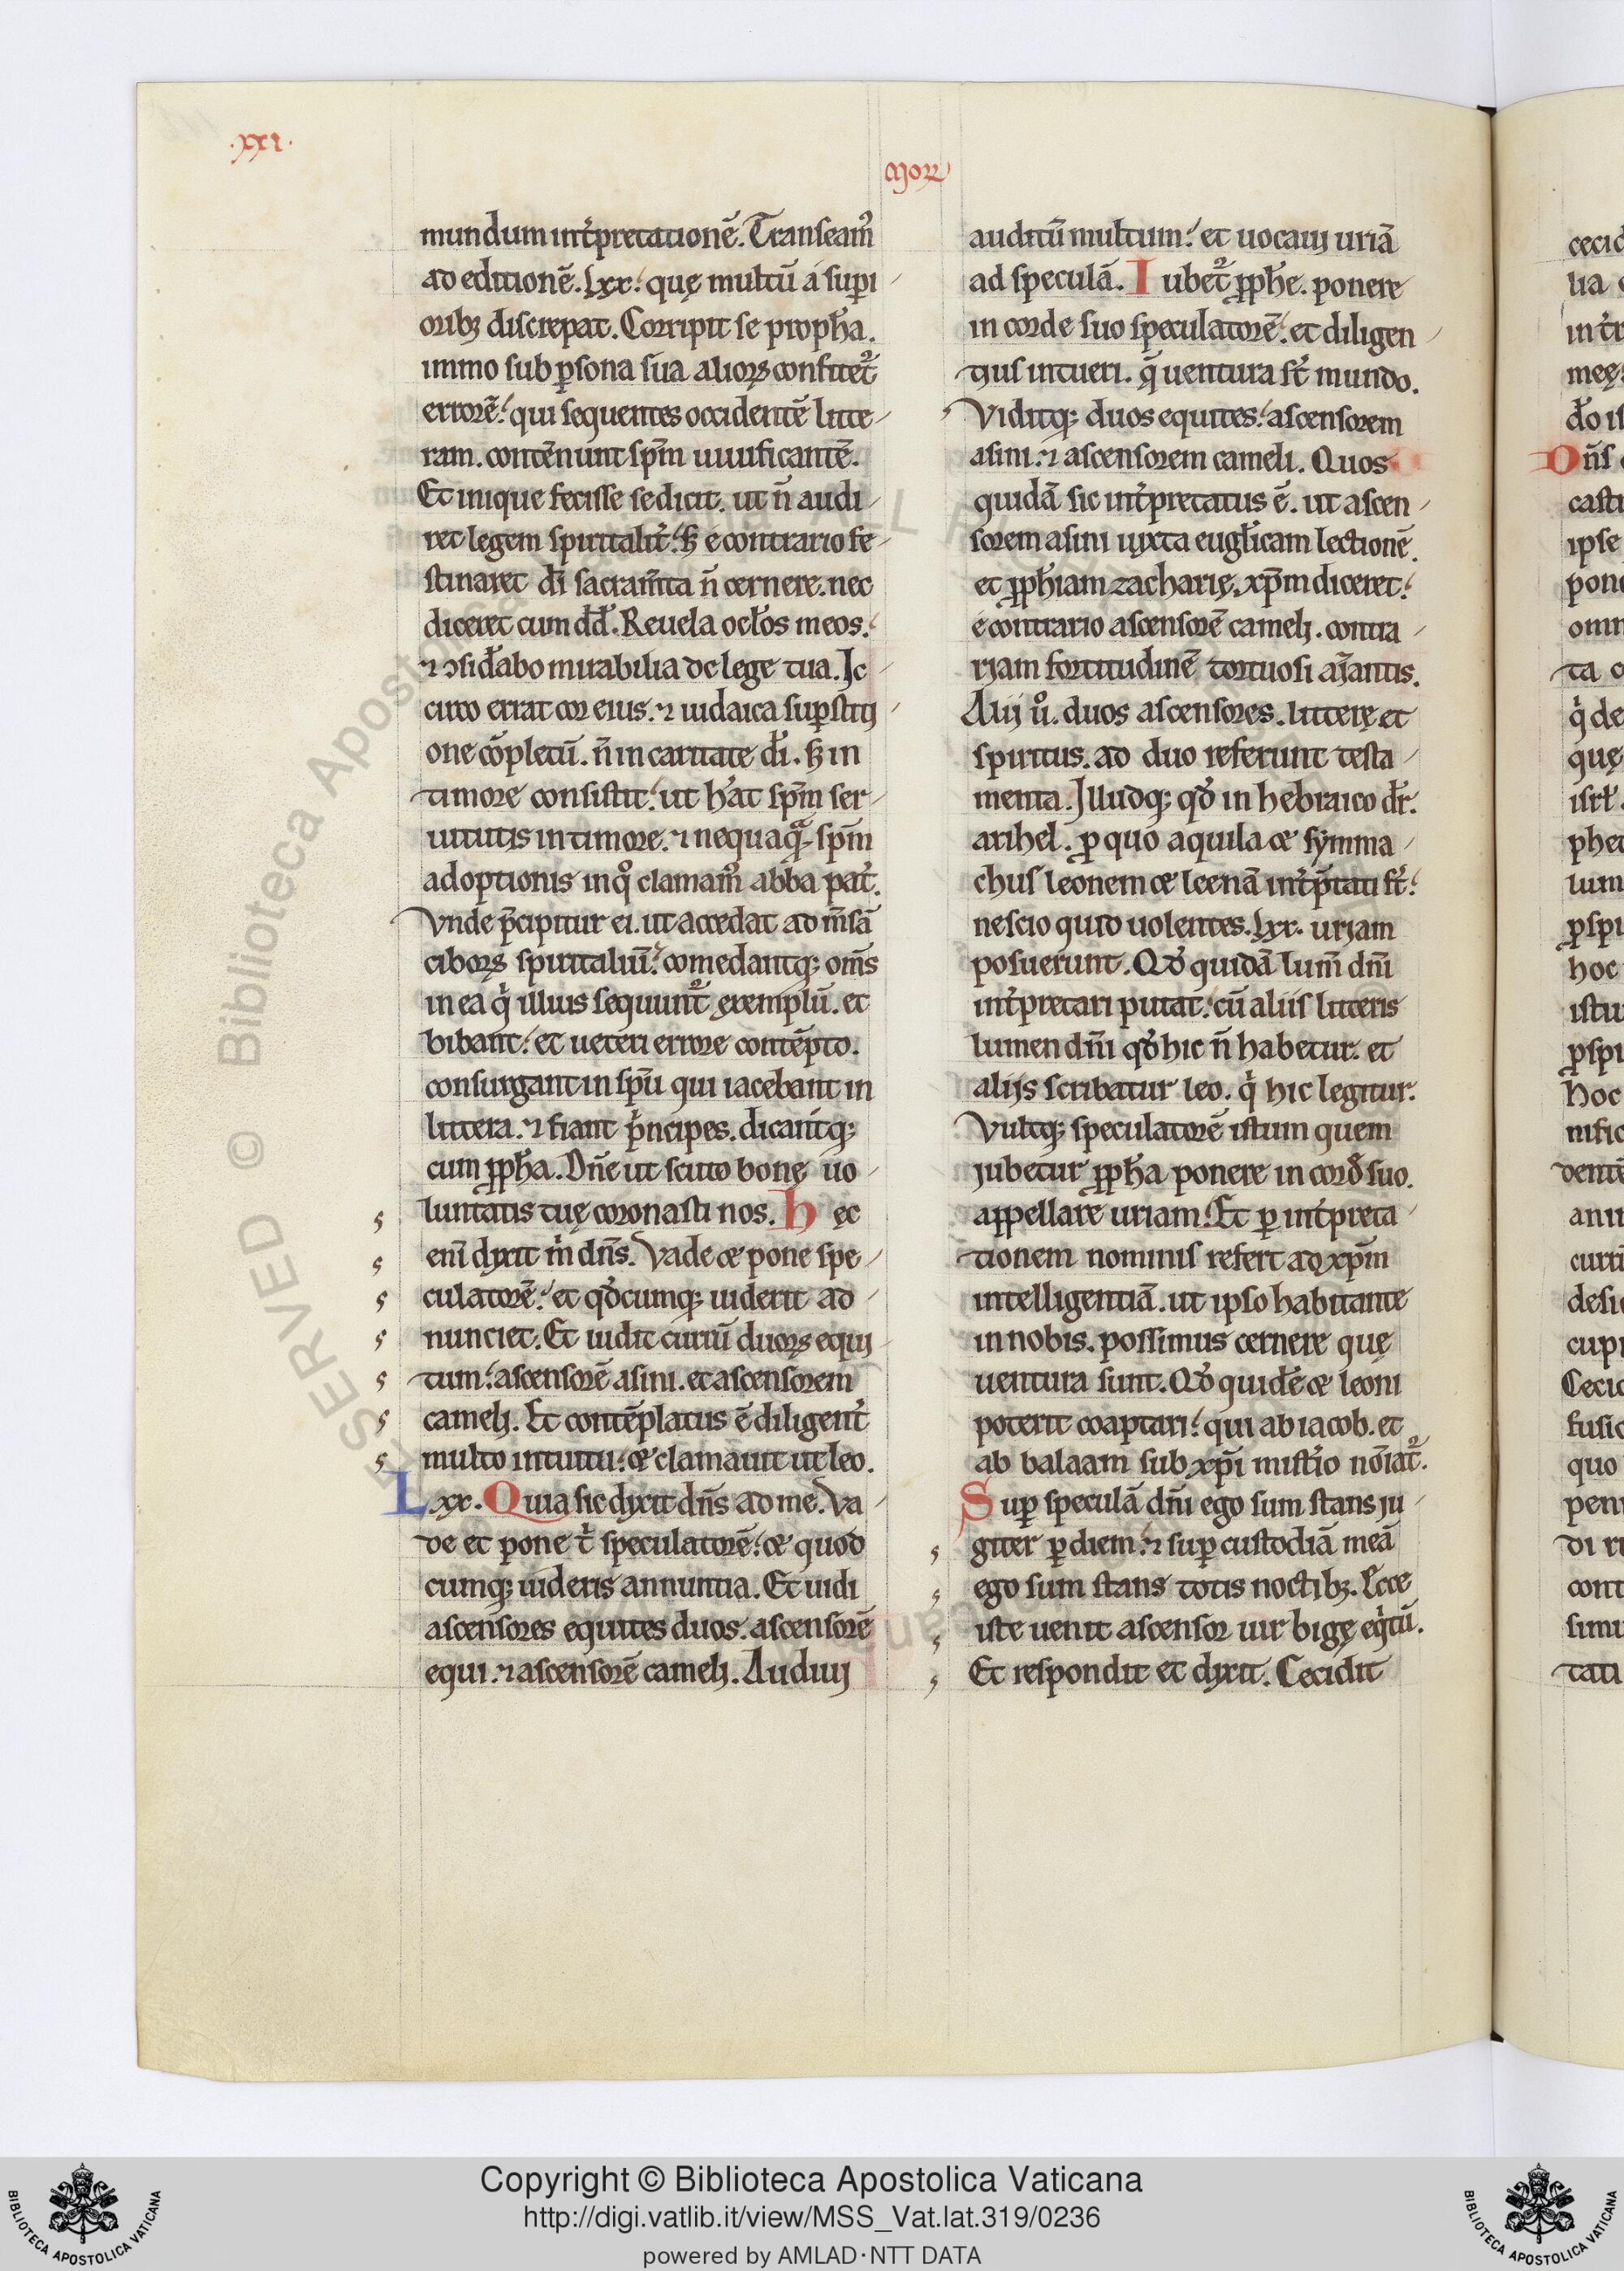 .xxi.
Morꝝ
mundum int̾pretationē. Transeam᷒
ad editionē. Lxx. quę multū a sup̲i
orib; discrepat. Corripit se prop̄ha.
immo sub ꝑsona sua alioꝝ confitet᷑
errorē. qui sequentes occidentē litte
ram. contēnunt sp̄m uiuificantē.
Et inique fecisse se dicit. ut n̄ audi
ret legem spiritalit̾. ꝫ e contrario fe
stinaret dī sacram̄ta n̄ cernere. nec
diceret cum dd̄. Reuela ocl̄os meos.
⁊ ↄsid̄abo mirabilia de lege tua. Ic
circo errat cor eius. ⁊ iudaica suꝑstiti
one cōpletū. n̄ in caritate dī. ꝫ in
timore consistit. ut h̄at sp̄m ser
uitutis in timore. ⁊ nequaq̃ sp̄m
adoptionis in qͦ clamam᷒ abba pat̾.
Vnde p̄cipitur ei. ut accedat ad m̄sā
ciboꝝ spiritaliū. comedantq; om̄s
in ea qͥ illius sequunt᷑ exemplū. et
bibant. et ueteri errore contēpto.
consurgant in sp̄u qui iacebant in
littera. ⁊ fiant pͥncipes. dicantq;
cum ꝓph̄a. Dn̄e ut scuto bonę uo
luntatis tuę coronasti nos. Hęc
enī dixit m̍ dn̄s. Vade & pone spe
culatorē. et qd̄cumq; uiderit ad
nunciet. Et uidit currū duoꝝ equi
tum. ascensorē asini. et ascensorem
cameli. Et contēplatus ē diligent̾
multo intuitu. & clamauit ut leo.
Lxx. Quia sic dixit dn̄s ad me. Va
de et pone t̍ speculatorē. & quod
cumq; uideris annuntia. Et uidi
ascensores equites duos. ascensorē
equi. ⁊ ascensorē cameli. Audiui
auditū multum. et uocaui uriā
ad speculā. Iubet᷑ ꝓph̄e. ponere
in corde suo speculatorē. et diligen
tius intueri. q̄ uentura st̄ mundo.
Viditq; duos equites. ascensorem
asini. ⁊ ascensorem cameli. Quos
quidā sic int̾pretatus ē. ut ascen
sorem asini iuxta eugl̄icam lectionē.
et ꝓph̄iam zacharię. xp̄m diceret.
e contrario ascensorē cameli. contra
riam fortitudinē tortuosi aīantis.
Alii u̾o. duos ascensores. litterę et
spiritus. ad duo referunt testa
menta. Illudq; qd̄ in hebraico dr̄.
arihel. ꝓ quo aquila & symma
chus leonem & leenā int̾p̄tati st̄.
nescio quid uolentes. Lxx. uriam
posuerunt. Qd̄ quidā lum̄ dn̄i
int̾pretari putat. cū aliis litteris
lumen dn̄i qd̄ hic n̄ habetur. et
aliis scribatur leo. qͥ hic legitur.
Vultq; speculatorē istum quem
iubetur ꝓph̄a ponere in cord̄ suo.
appellare uriam. Et ꝑ int̾preta
tionem nominis refert ad xp̄m
intelligentiā. ut ipso habitante
in nobis. possimus cernere quę
uentura sunt. Qd̄ quidē & leoni
poterit coaptari. qui ab iacob. et
ab balaam sub xp̄i mist̾io nōiat᷑.
Suꝑ speculā dn̄i ego sum stans iu
giter ꝑ diem. ⁊ suꝑ custodiā meā
ego sum stans totis noctib;. Ecce
iste uenit ascensor uir bigę eqͥtū.
Et respondit et dixit. Cecidit
Copyright © Biblioteca Apostolica Vaticana
http://digi.vatlib.it/view/MSS_Vat.lat.319/0236
powered by AMLAD·NTT DATA
BIBLIOTECA APOSTOLICA VATICANA
BIBLIOTECA APOSTOLICA VATICANA